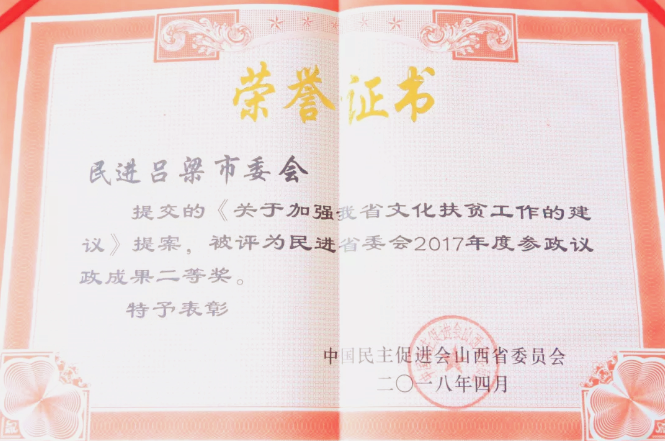 荣誉证书
民进吕梁市委会
提交的《关于加强我省文化扶贫工作的建
议》提案，被评为民进省委会2017年度参政议
政成果二等奖。
特予表彰
中国民主促进会山西省委员会
二〇一八年四月